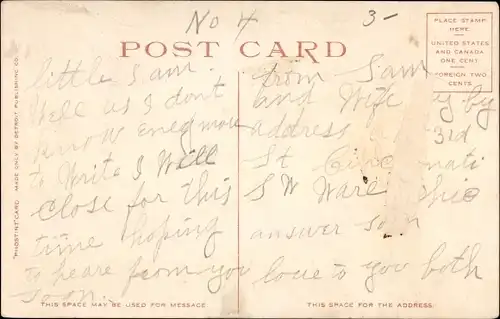 No 4
3-
POST CARD
PLACE STAMP
HERE
UNITED STATES
AND CANADA
ONE CENT
FOREIGN TWO
CENTS
"PHOSTINT" CARD MADE ONLY BY DETROIT PUBLISHING CO.
little Sam.
Well as I dont
know eney more
to Write I Will
Close for this
time hoping
to heare from you
soon.
from Sam
and Wife by by
address 3rd
St Cincinnati
S W Ohio
answer soon
love to you both
THIS SPACE MAY BE USED FOR MESSAGE.
THIS SPACE FOR THE ADDRESS.